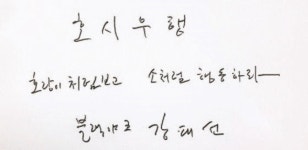 호시우행
호랑이처럼보고 소처럼 행동하리—
블랙야크 강태선